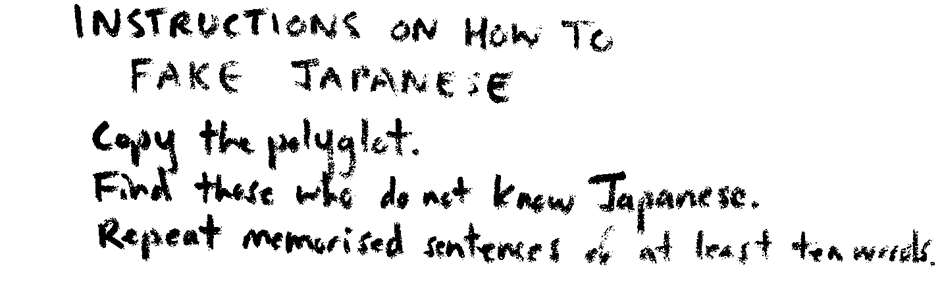 INSTRUCTIONS ON HOW TO
FAKE JAPANESE
Copy the polyglot.
Find those who do not know Japanese.
Repeat memorised sentences of at least ten words.